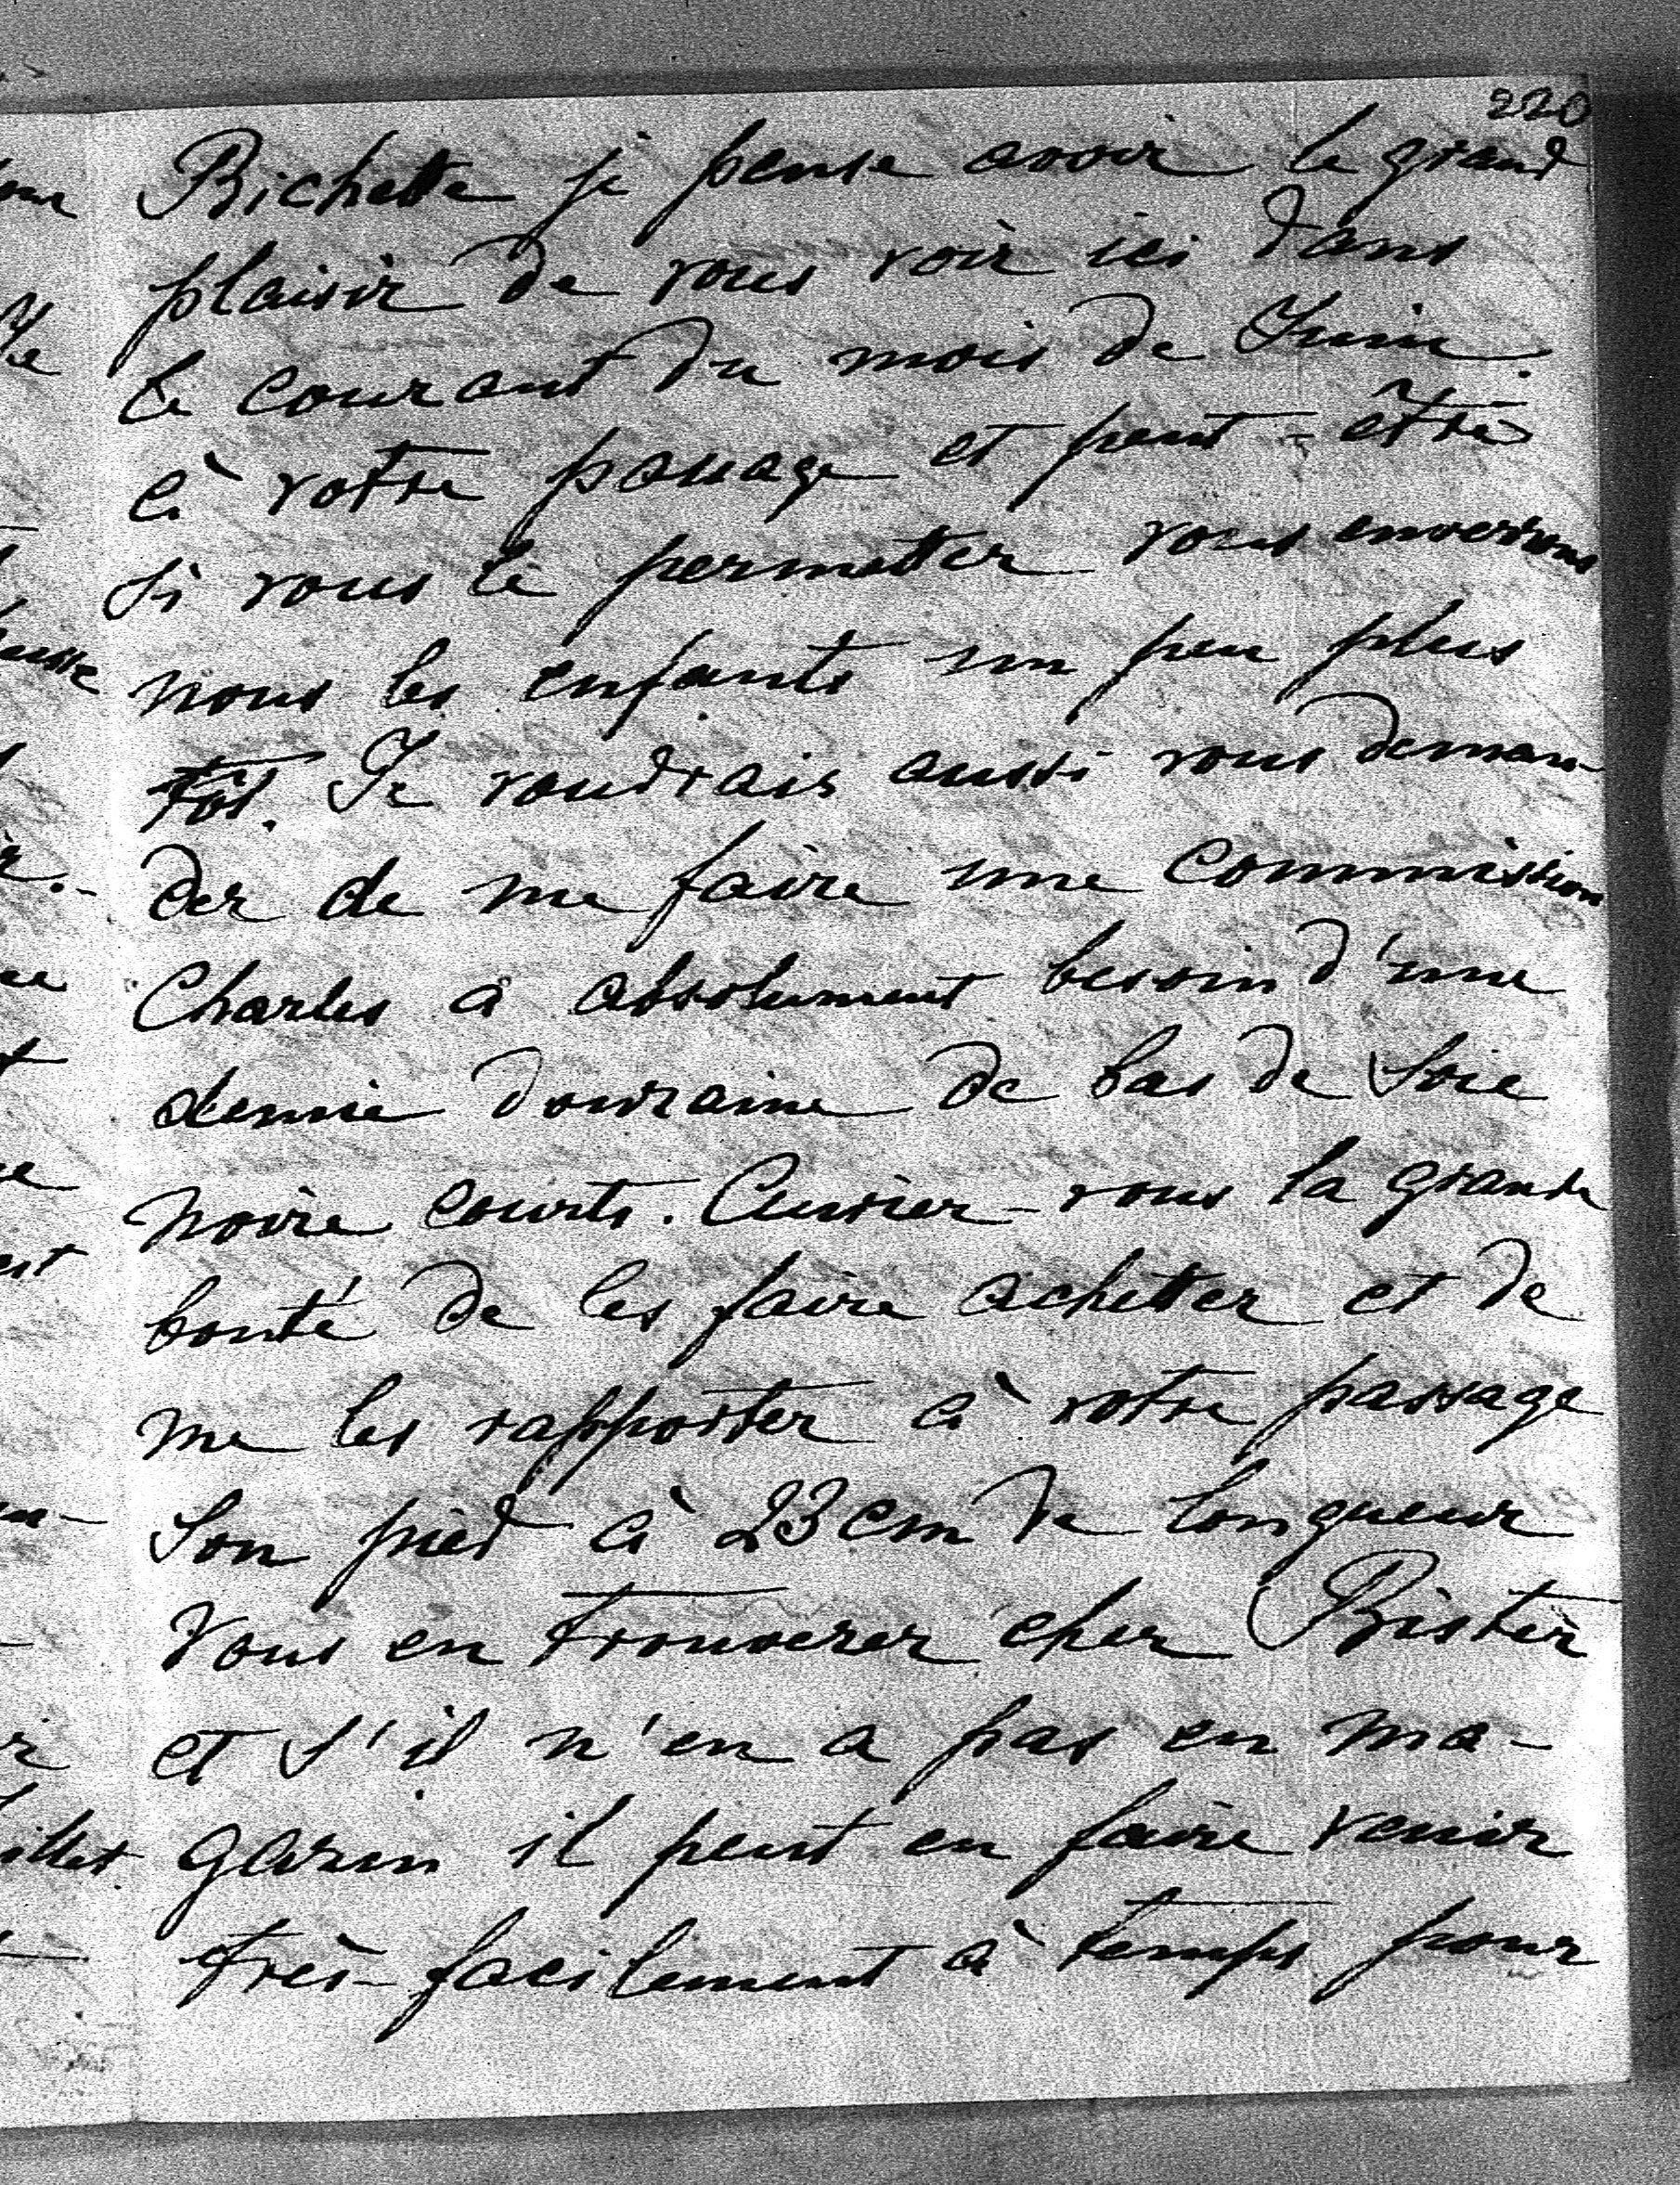 220
Bichette je pense avoir le grand
plaisir de vous voir ici dans
le courant du mois de Juin
à votre passage et peut-être
si vous le permetter vous enverrons
nous les enfants un peu plus
tôt. Je voudrais aussi vous deman-
der de me faire une commission
Charles a absolument besoin d'une
demie douzaine de bas de soie
noire courts. Auriez-vous la grande
bonté de les faire achetter et de
me les rapporter à votre passage
Son pied à 23 cm de longueur
Vous en trouverez chez
et s'il n'en a pas en ma-
gazin il peut en faire venir
très-facilement à temps pour